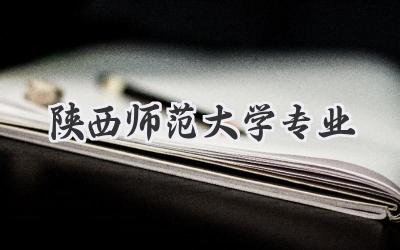 陕西师范大学专业